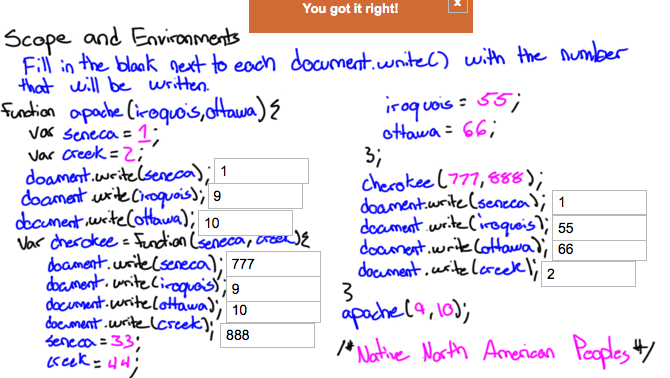 You got it right!
x
Scope and Environments
Fill in the blank next to each document.write() with the number
that will be written.
function apache(iroquois,ottawa){
var seneca = 1;
var creek = 2;
document.write(seneca); 1
document.write(iroquois); 9
document.write(ottawa); 10
var cherokee = function(seneca, creek){
document.write(seneca); 777
document.write(iroquois); 9
document.write(ottawa); 10
document.write(creek); 888
seneca = 33;
creek = 44;
iroquois = 55;
ottawa = 66;
};
cherokee(777,888);
document.write(seneca); 1
document.write(iroquois); 55
document.write(ottawa); 66
document.write(creek); 2
}
apache(9,10);
/* Native North American Peoples */